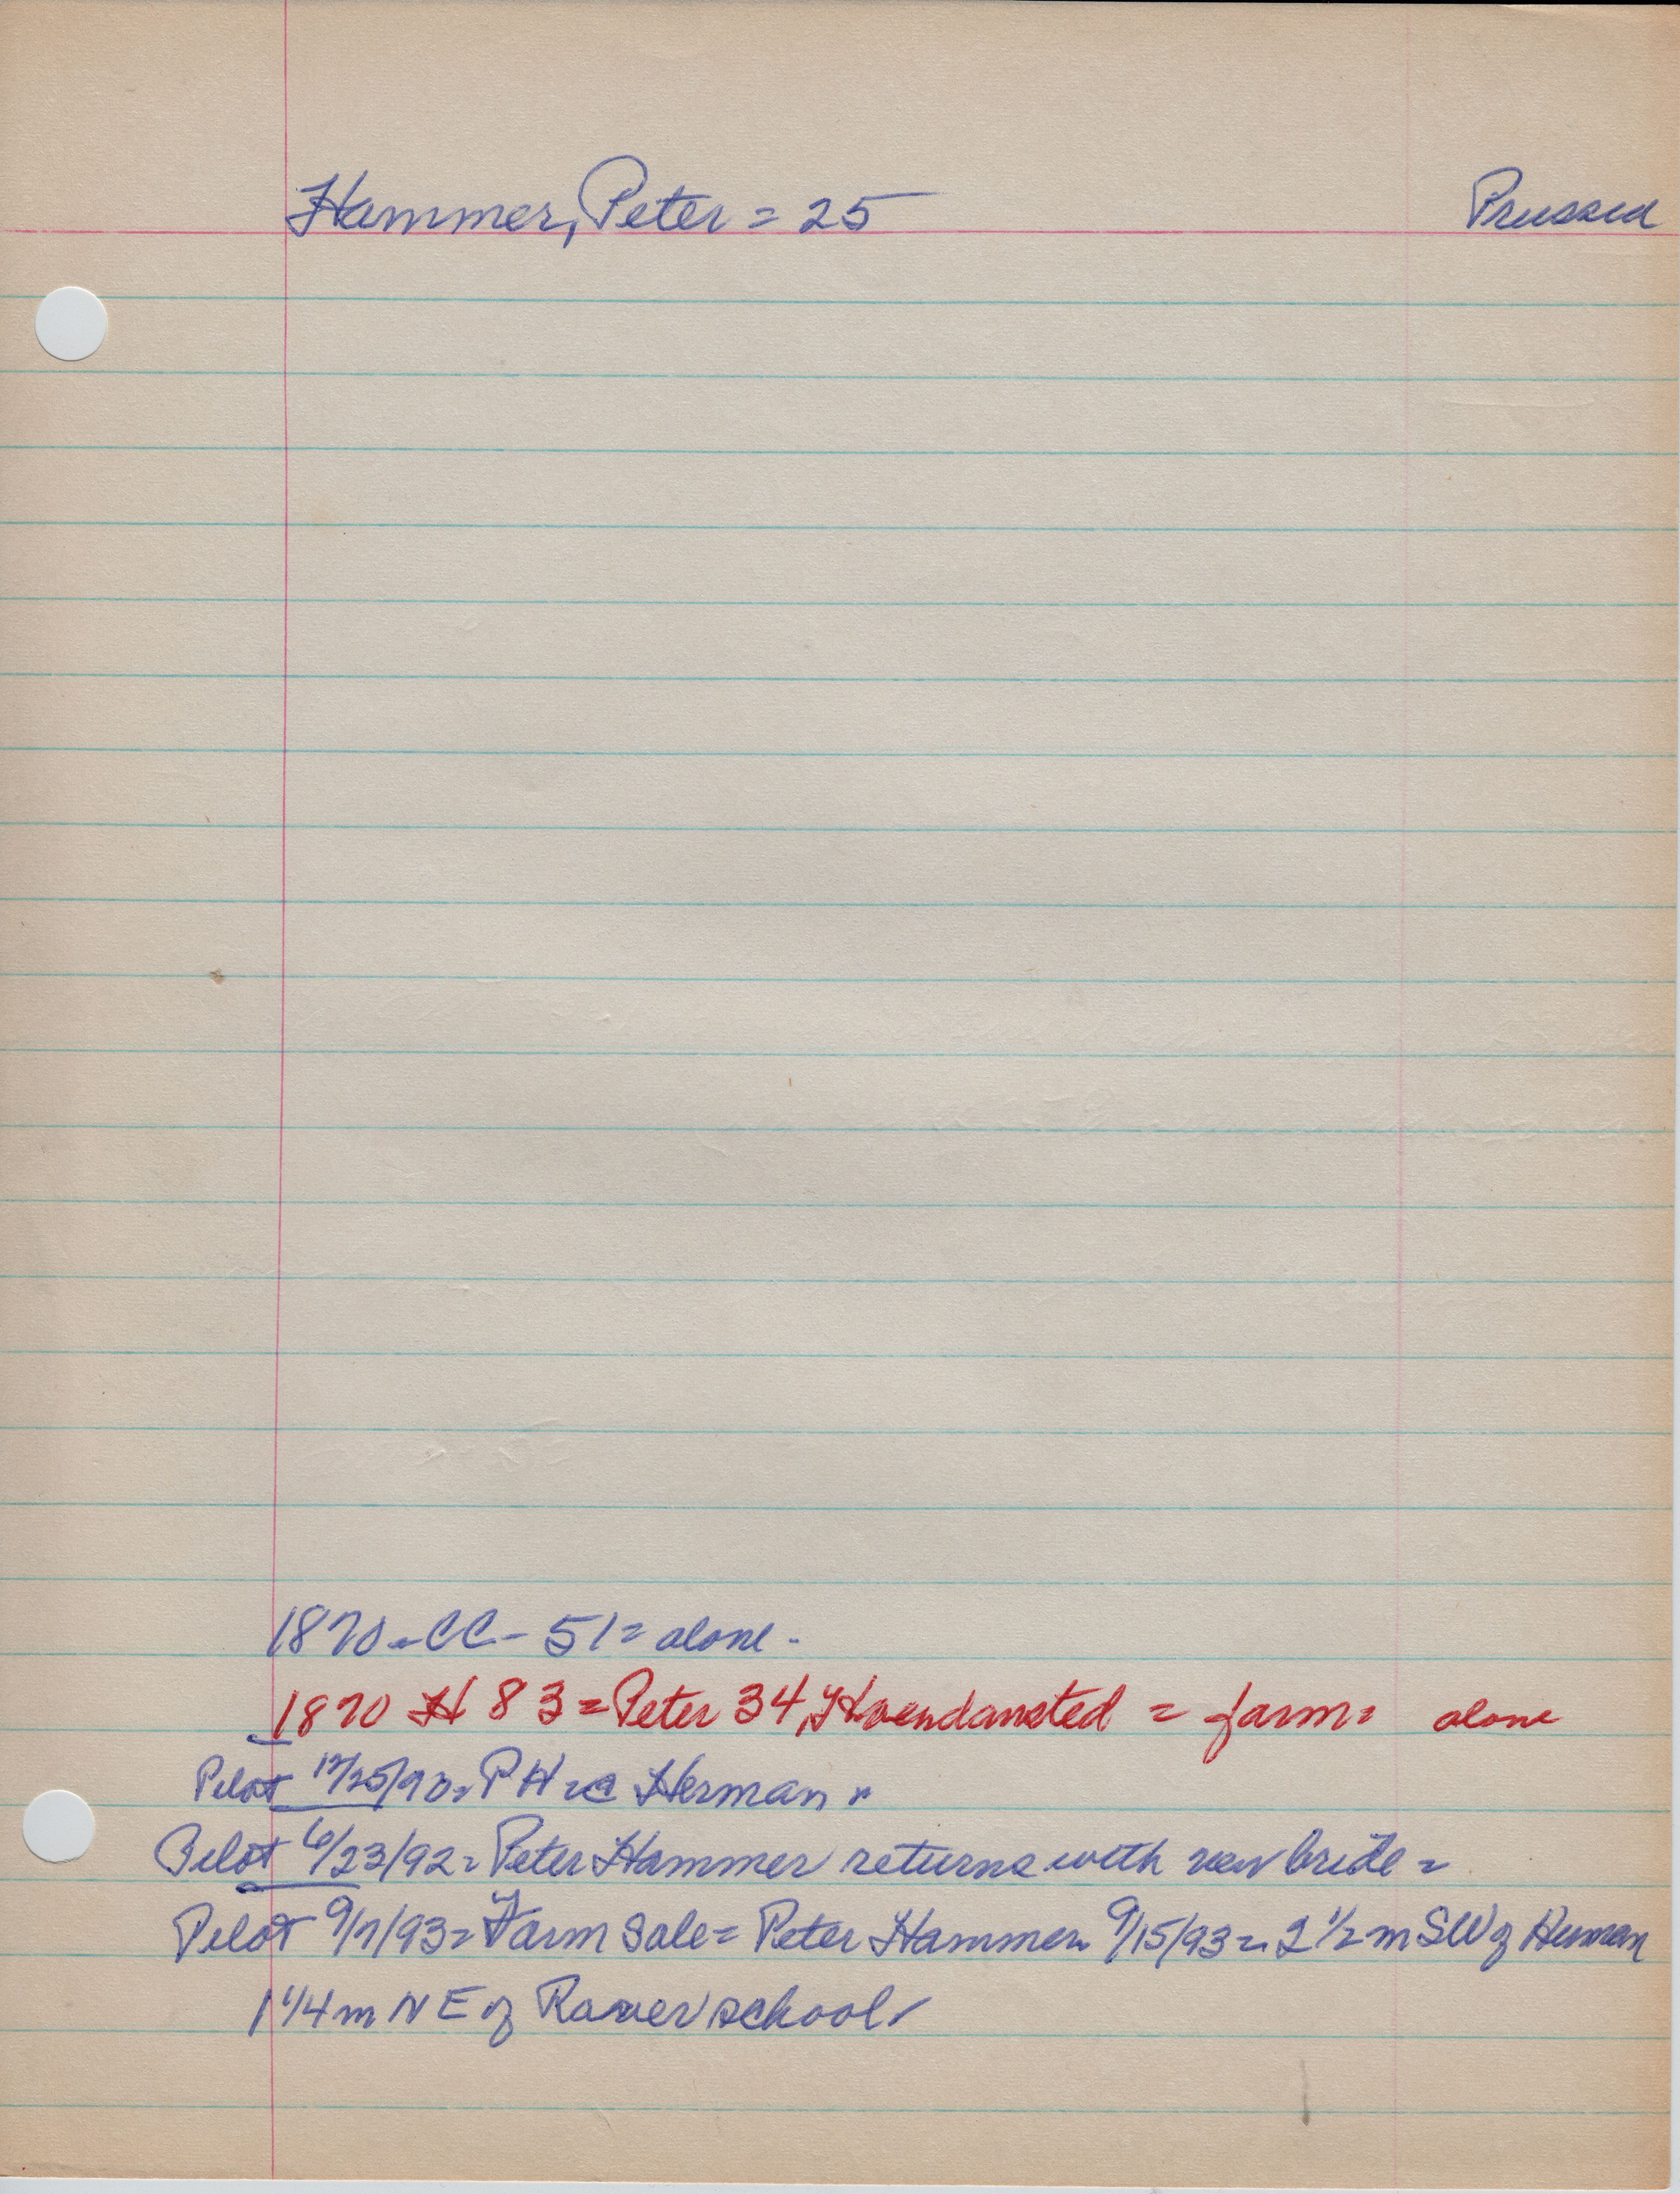 Hammer, Peter = 25 Prussia
1870 - CC - 51 = alone -
1870 H 83 = Peter 34, = farm = alone
Pilot 12/25/90 = PH = Herman "
Pilot 6/23/92 = Peter Hammer returns with new bride =
Pilot 9/7/93 = Farm Sale = Peter Hammer 9/15/93 = 2 1/2 m SW of Herman
1 1/4 m NE of school